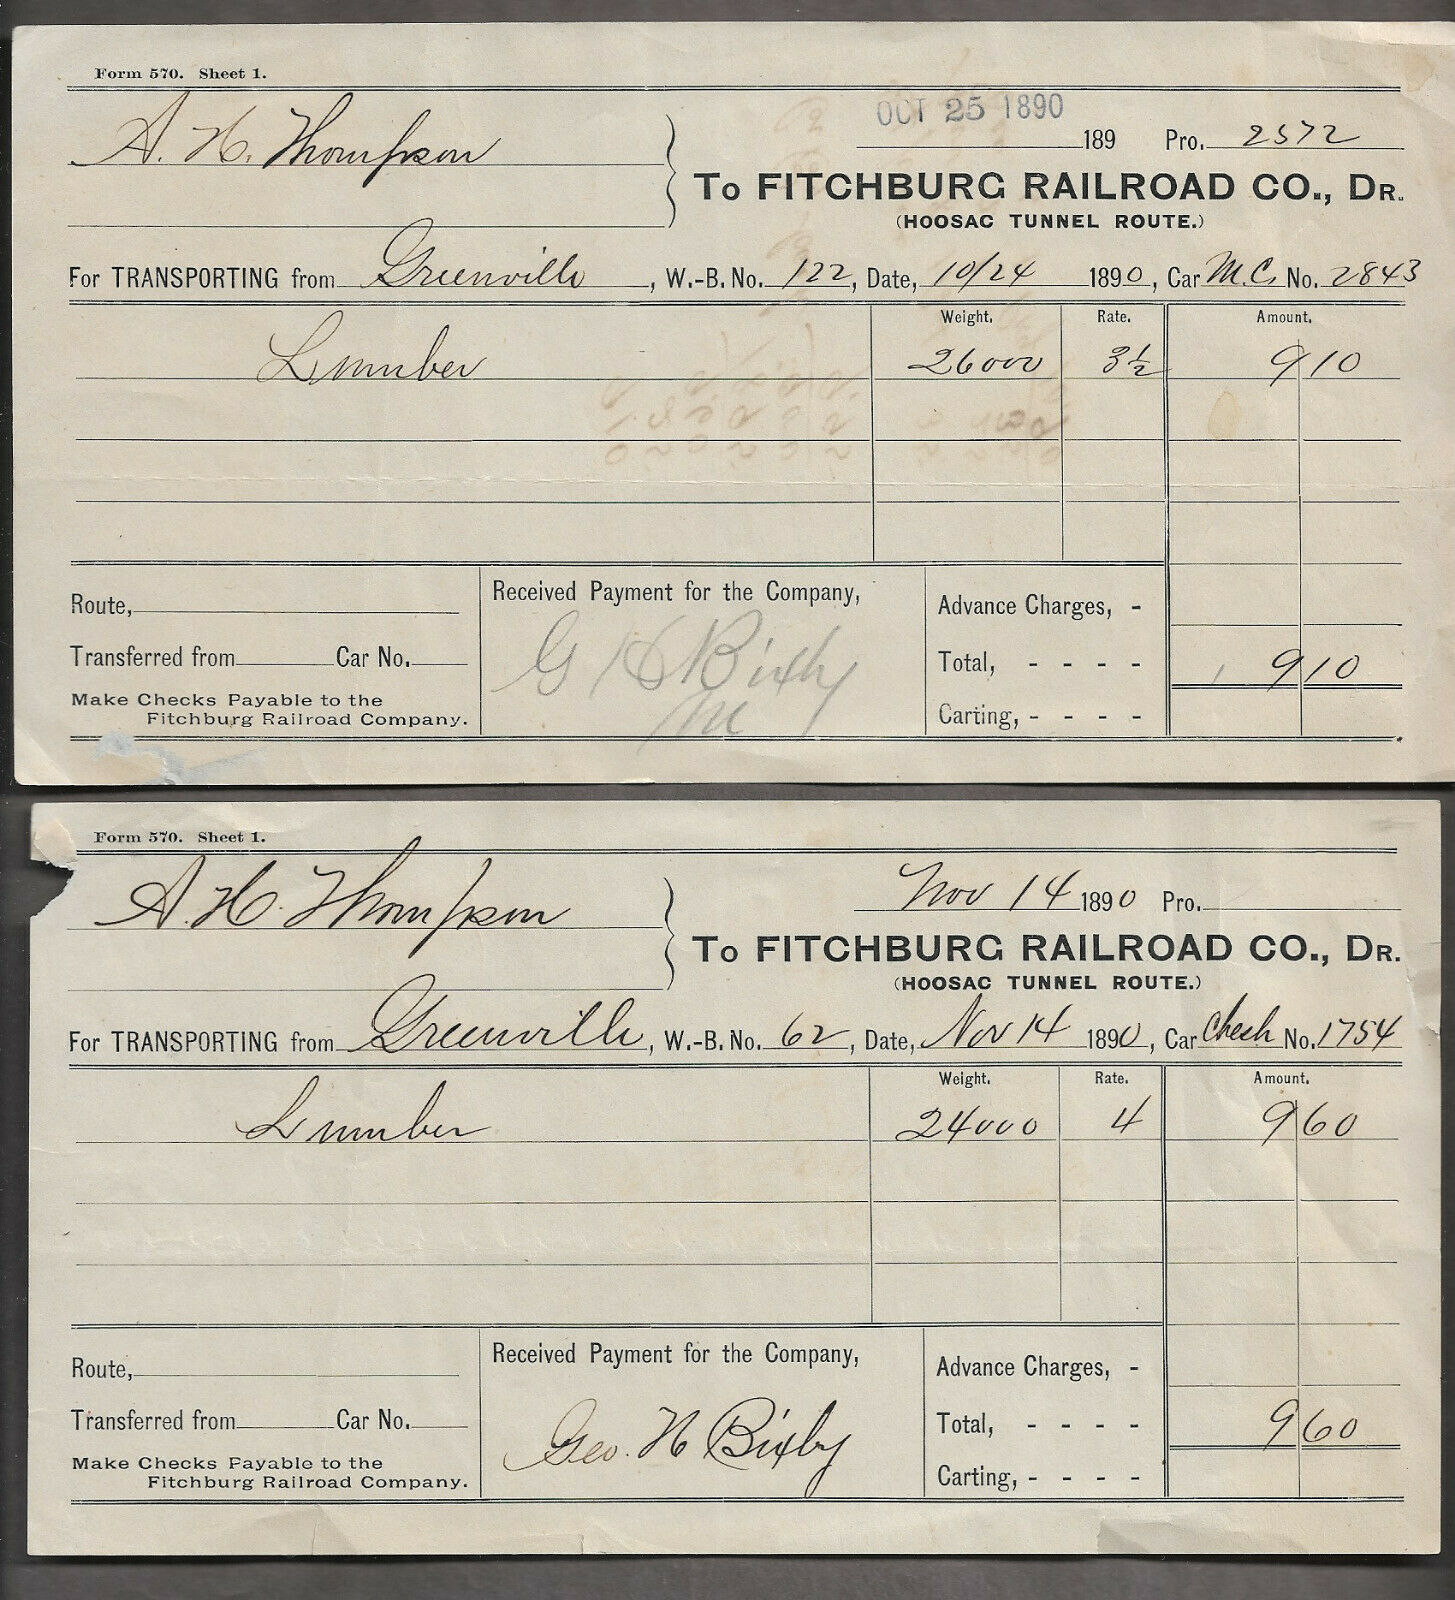 Form 570. Sheet 1.
OCT 25 1890
A. H. Thompson
189 Pro. 2572
To FITCHBURG RAILROAD CO., DR.
(HOOSAC TUNNEL ROUTE.)
For TRANSPORTING from Greenville, W.-B. No. 122, Date, 10/24 1890, Car M.C. No. 2843
Weight. Rate. Amount.
Lumber 26000 3½ 9 10
Received Payment for the Company,
Route, Advance Charges, -
G H Bixby
Transferred from Car No. Total, - - - - 9 10
Make Checks Payable to the
Fitchburg Railroad Company. Carting, - - - -
M
Form 570. Sheet 1.
A. H. Thompson
Nov 14 1890 Pro.
To FITCHBURG RAILROAD CO., DR.
(HOOSAC TUNNEL ROUTE.)
For TRANSPORTING from Greenville, W.-B. No. 62, Date, Nov 14 1890, Car Chesh No. 1754
Weight. Rate. Amount.
Lumber 24000 4 9 60
Received Payment for the Company,
Route, Advance Charges, -
Geo. H Bixby
Transferred from Car No. Total, - - - - 9 60
Make Checks Payable to the
Fitchburg Railroad Company. Carting, - - - -